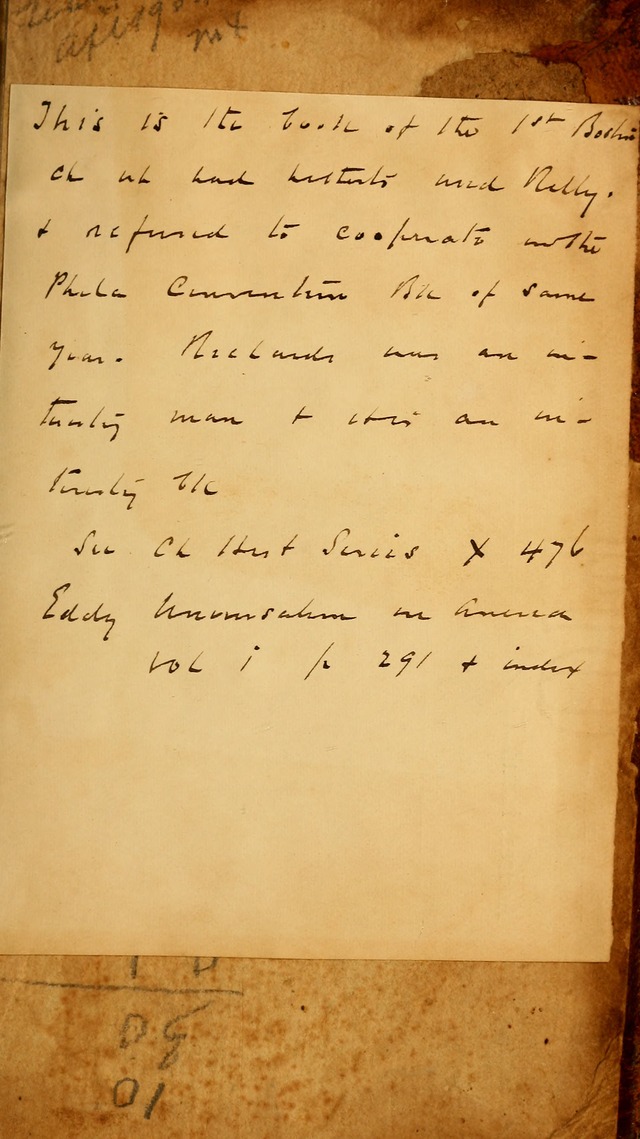 This is the book of the 1st Boston
ch wh had hitherto used Relly.
& refused to cooperate in the
Phila Convention Bk of same
year. Richards was an in-
teresting man & this an in-
teresting bk
See Ch Hist Series X 476
Eddy Universalism in America
vol 1 p 291 & index
01